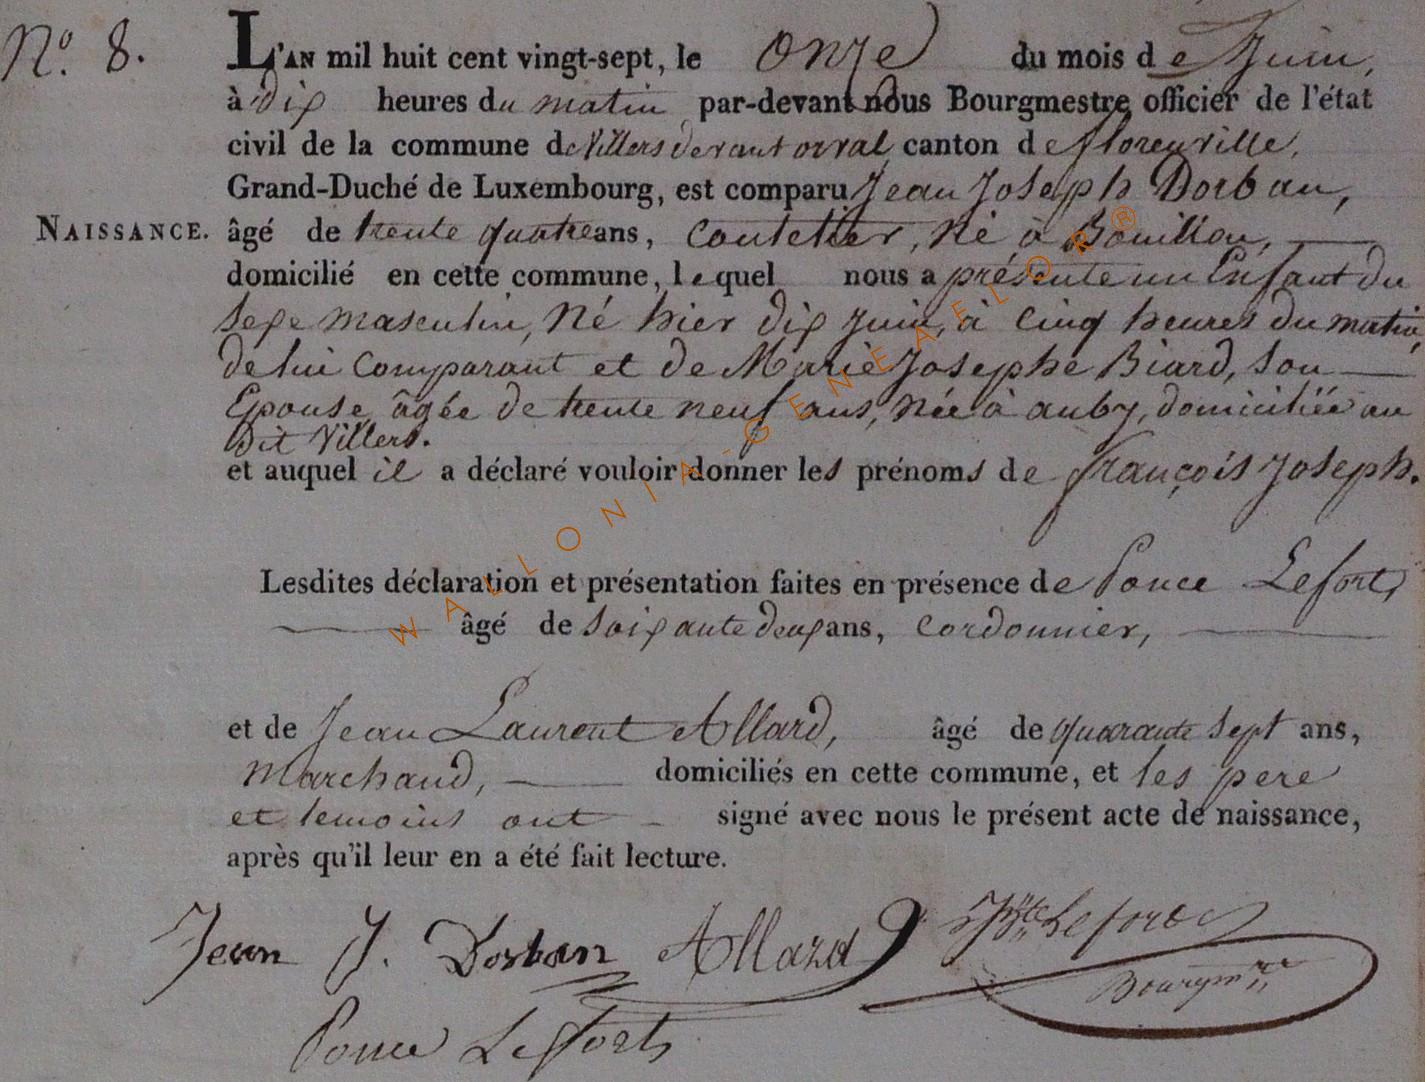 N.o 8.
L'AN mil huit cent vingt-sept, le onze du mois de Juin,
à dix heures du matin par-devant nous Bourgmestre officier de l'état
civil de la commune de Villers devant orval canton de florenville,
Grand-Duché de Luxembourg, est comparu Jean Joseph Dorban,
NAISSANCE. âgé de trente quatre ans, coutelier, né à Bouillon,
domicilié en cette commune, lequel nous a présenté un Enfant du
sexe masculin, Né hier dix juin, à cinq heures du matin,
de lui Comparant et de Marie Josephe Biard, son
Epouse, âgée de trente neuf ans, née à auby, domiciliée au
dit Villers.
et auquel il a déclaré vouloir donner les prénoms de françois Joseph.
Lesdites déclaration et présentation faites en présence de Ponce Lefort,
âgé de soixante deux ans, cordonnier,
et de Jean Laurent Allard, âgé de quarante sept ans,
Marchand, domiciliés en cette commune, et les pere
et temoins ont signé avec nous le présent acte de naissance,
après qu'il leur en a été fait lecture.
Jean J. Dorban Allard JBte Lefort
Bourgm.tre
Ponce Lefort
WALLONIA-GENEALOR®